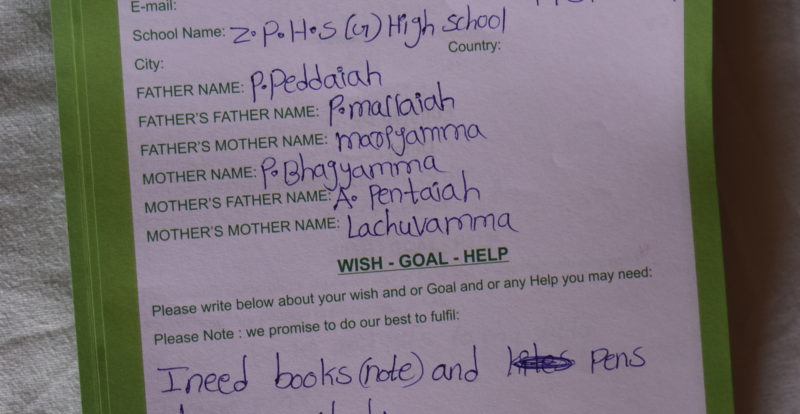 E-mail:
School Name: Z.P.H.S (G) High school
Country:
City:
FATHER NAME: P.Peddaiah
FATHER'S FATHER NAME: P.mallaiah
FATHER'S MOTHER NAME:
MOTHER NAME: P.Bhagyamma
MOTHER'S FATHER NAME: A. Pentaiah
MOTHER'S MOTHER NAME: Lachuvamma
WISH - GOAL - HELP
Please write below about your wish and or Goal and or any Help you may need:
Please Note : we promise to do our best to fulfil:
I need books(note) and pens